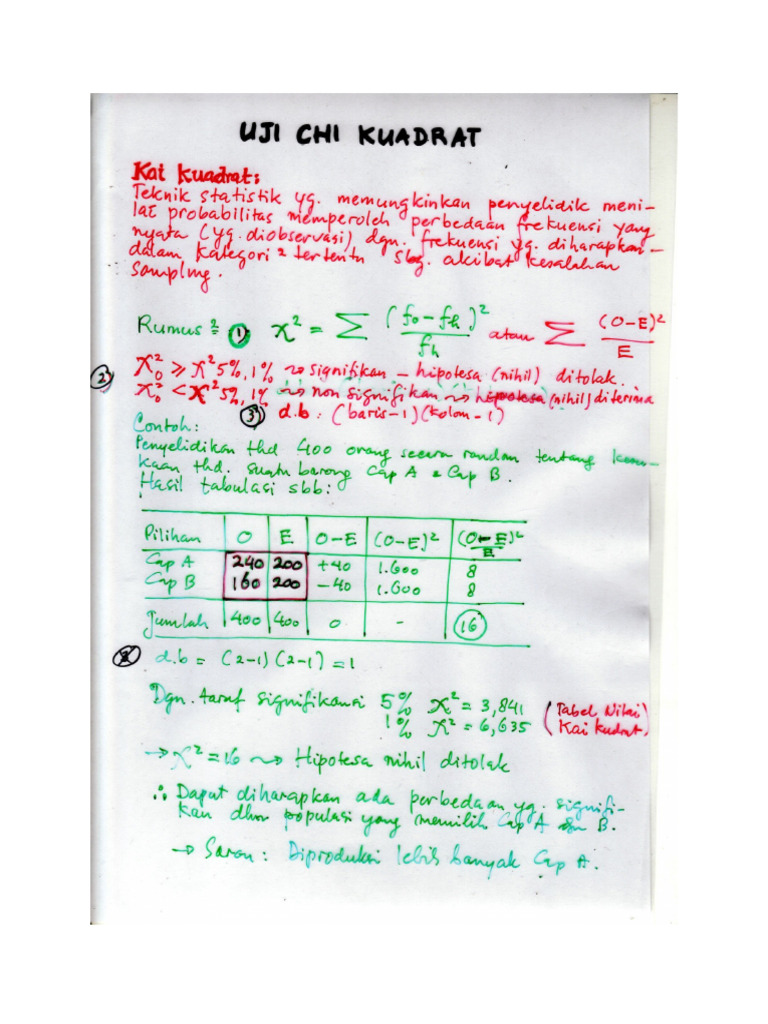 UJI CHI KUADRAT
Kai kuadrat:
Teknik statistik yg. memungkinkan penyelidik meni-
lai probabilitas memperoleh perbedaan frekuensi yang
nyata (yg. diobservasi) dgn. frekuensi yg. diharapkan-
dalam kategori² tertentu sbg. akibat kesalahan
sampling.
Rumus² = ① x² = ∑ (fo-fh)² / fh atau ∑ (O-E)² / E
② X²o ⩾ X² 5%, 1% ~> signifikan - hipotesa (nihil) ditolak.
X²o < X² 5%, 1% ~> non signifikan ~> hipotesa (nihil) diterima
③ d.b : (baris-1)(kolom-1)
Contoh:
Penyelidikan thd 400 orang secara random tentang kesu-
kaan thd. suatu barang Cap A & Cap B.
Hasil tabulasi sbb:
Pilihan O E O-E (O-E)² (O-E)²/E
Cap A 240 200 +40 1.600 8
Cap B 160 200 -40 1.600 8
Jumlah 400 400 0 - 16
d.b = (2-1)(2-1) = 1
Dgn. taraf signifikansi 5% X² = 3,841 (Tabel Nilai)
1% X² = 6,635 (Kai kudrat)
→ X² = 16 ~> Hipotesa nihil ditolak
∴ Dapat diharapkan ada perbedaan yg. signifi-
kan dlm populasi yang memilih Cap A B.
→ Saran : Diproduksi lebih banyak Cap A.